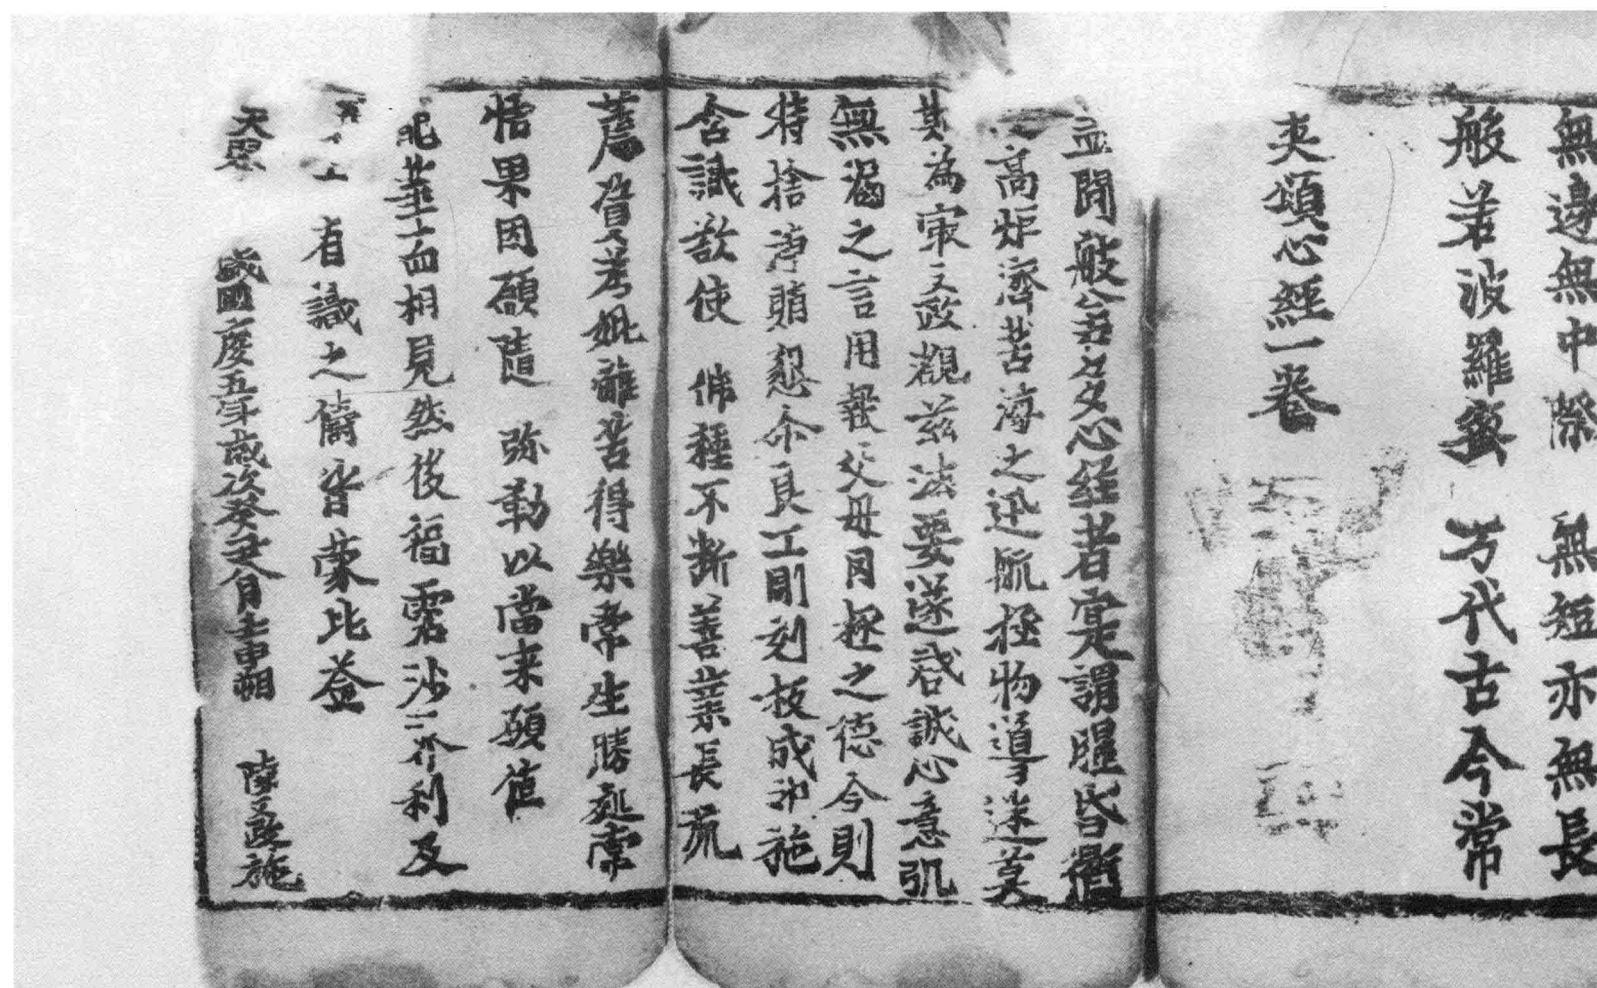 無邊無中際 無短亦無長
般若波羅蜜 万代古今常
夾頌心經一卷
盖聞般若多心經者寔謂曜昏衢
高炬濟苦海之迅航拯物導迷莫
其為最文政觀兹法要遂啓誠心意弘
無漏之言用報父母罔極之德今則
特捨淨賄懇命良工雕刻板成印施
含識欲使 佛種不斷善業長荒
薦資考妣離苦得樂常生勝處常
悟果因願隨 弥勒以當来願值
龍華而相見然後福霑沙界利及
有識之儔皆蒙此益
天盛國慶五年歲次癸丑八月壬申朔 陸文政施